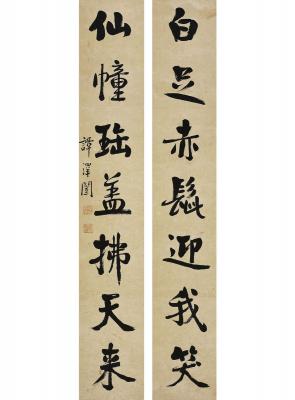 白足赤髭迎我笑
仙幢珤盖拂天来
譚澤闓